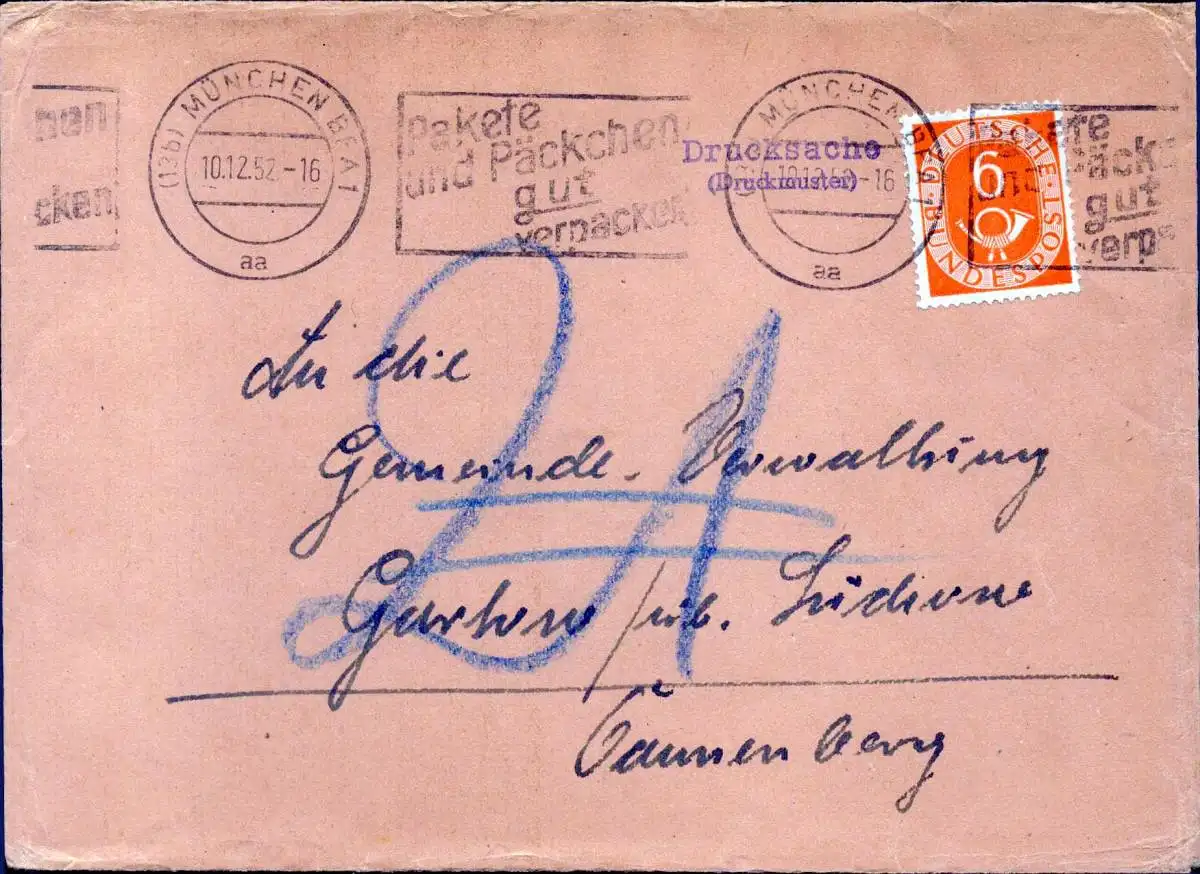 (13b) MÜNCHEN BA 1
10.12.52.-16
aa
Pakete
und Päckchen
gut
verpacken
nen
cken
Drucksache
(Druckmuster)
MÜNCHEN BA
10.12.52-16
aa
DEUTSCHE BUNDESPOST
6
kete
und Päckc
gut
verp
21
An die
Gemeinde-Verwaltung
Gartow / üb. Lüchow
Dannenberg